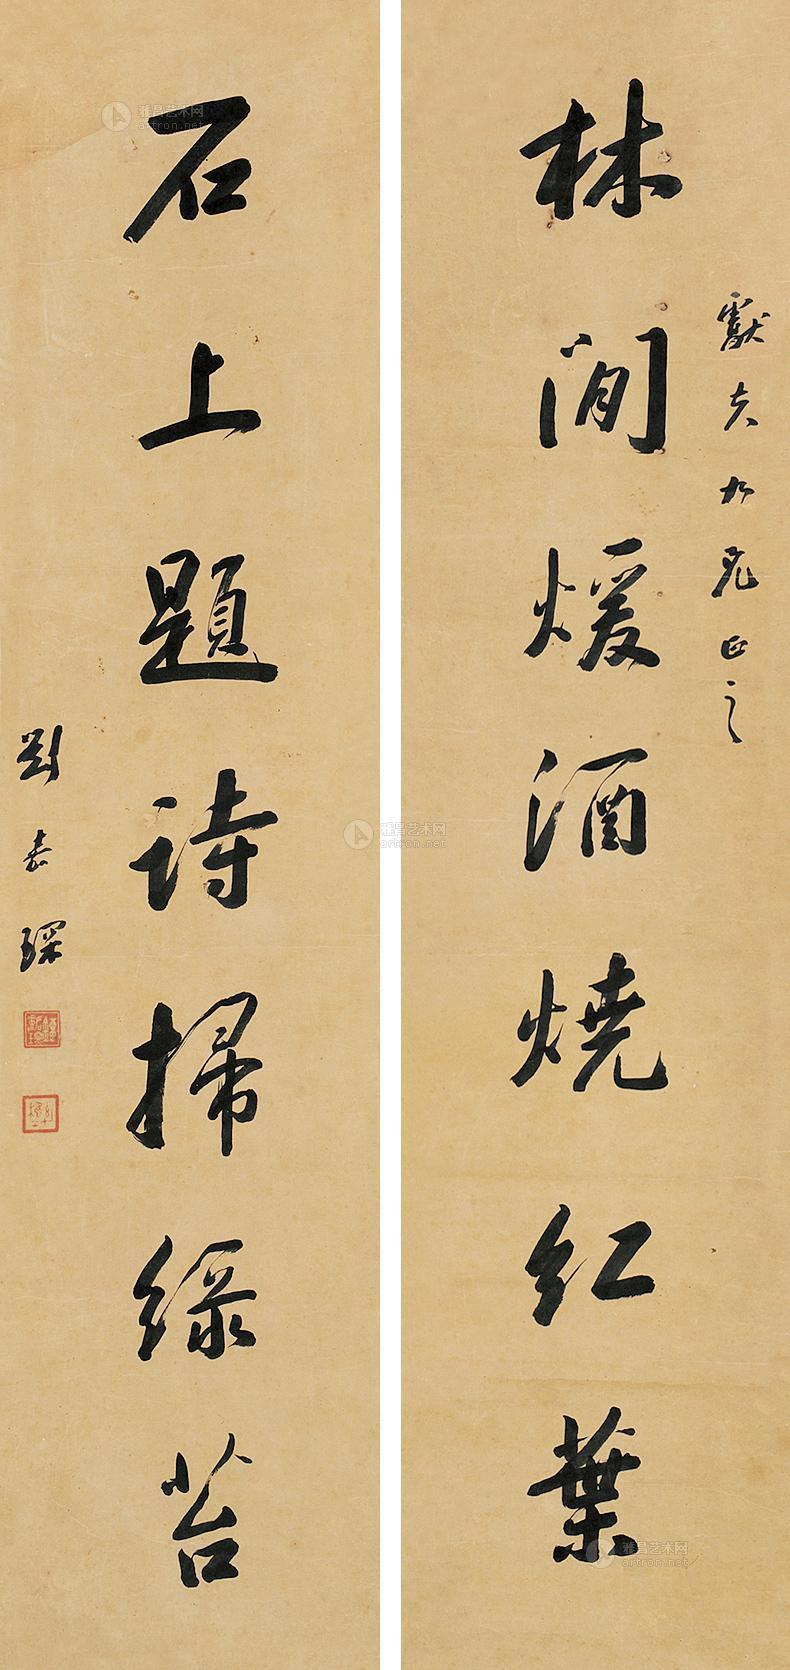 林間煖酒燒紅葉
獻夫九兄正之
石上題詩掃綠苔
劉嘉琛
雅昌艺术网
artron.net
雅昌艺术网
artron.net
雅昌艺术网
artron.net